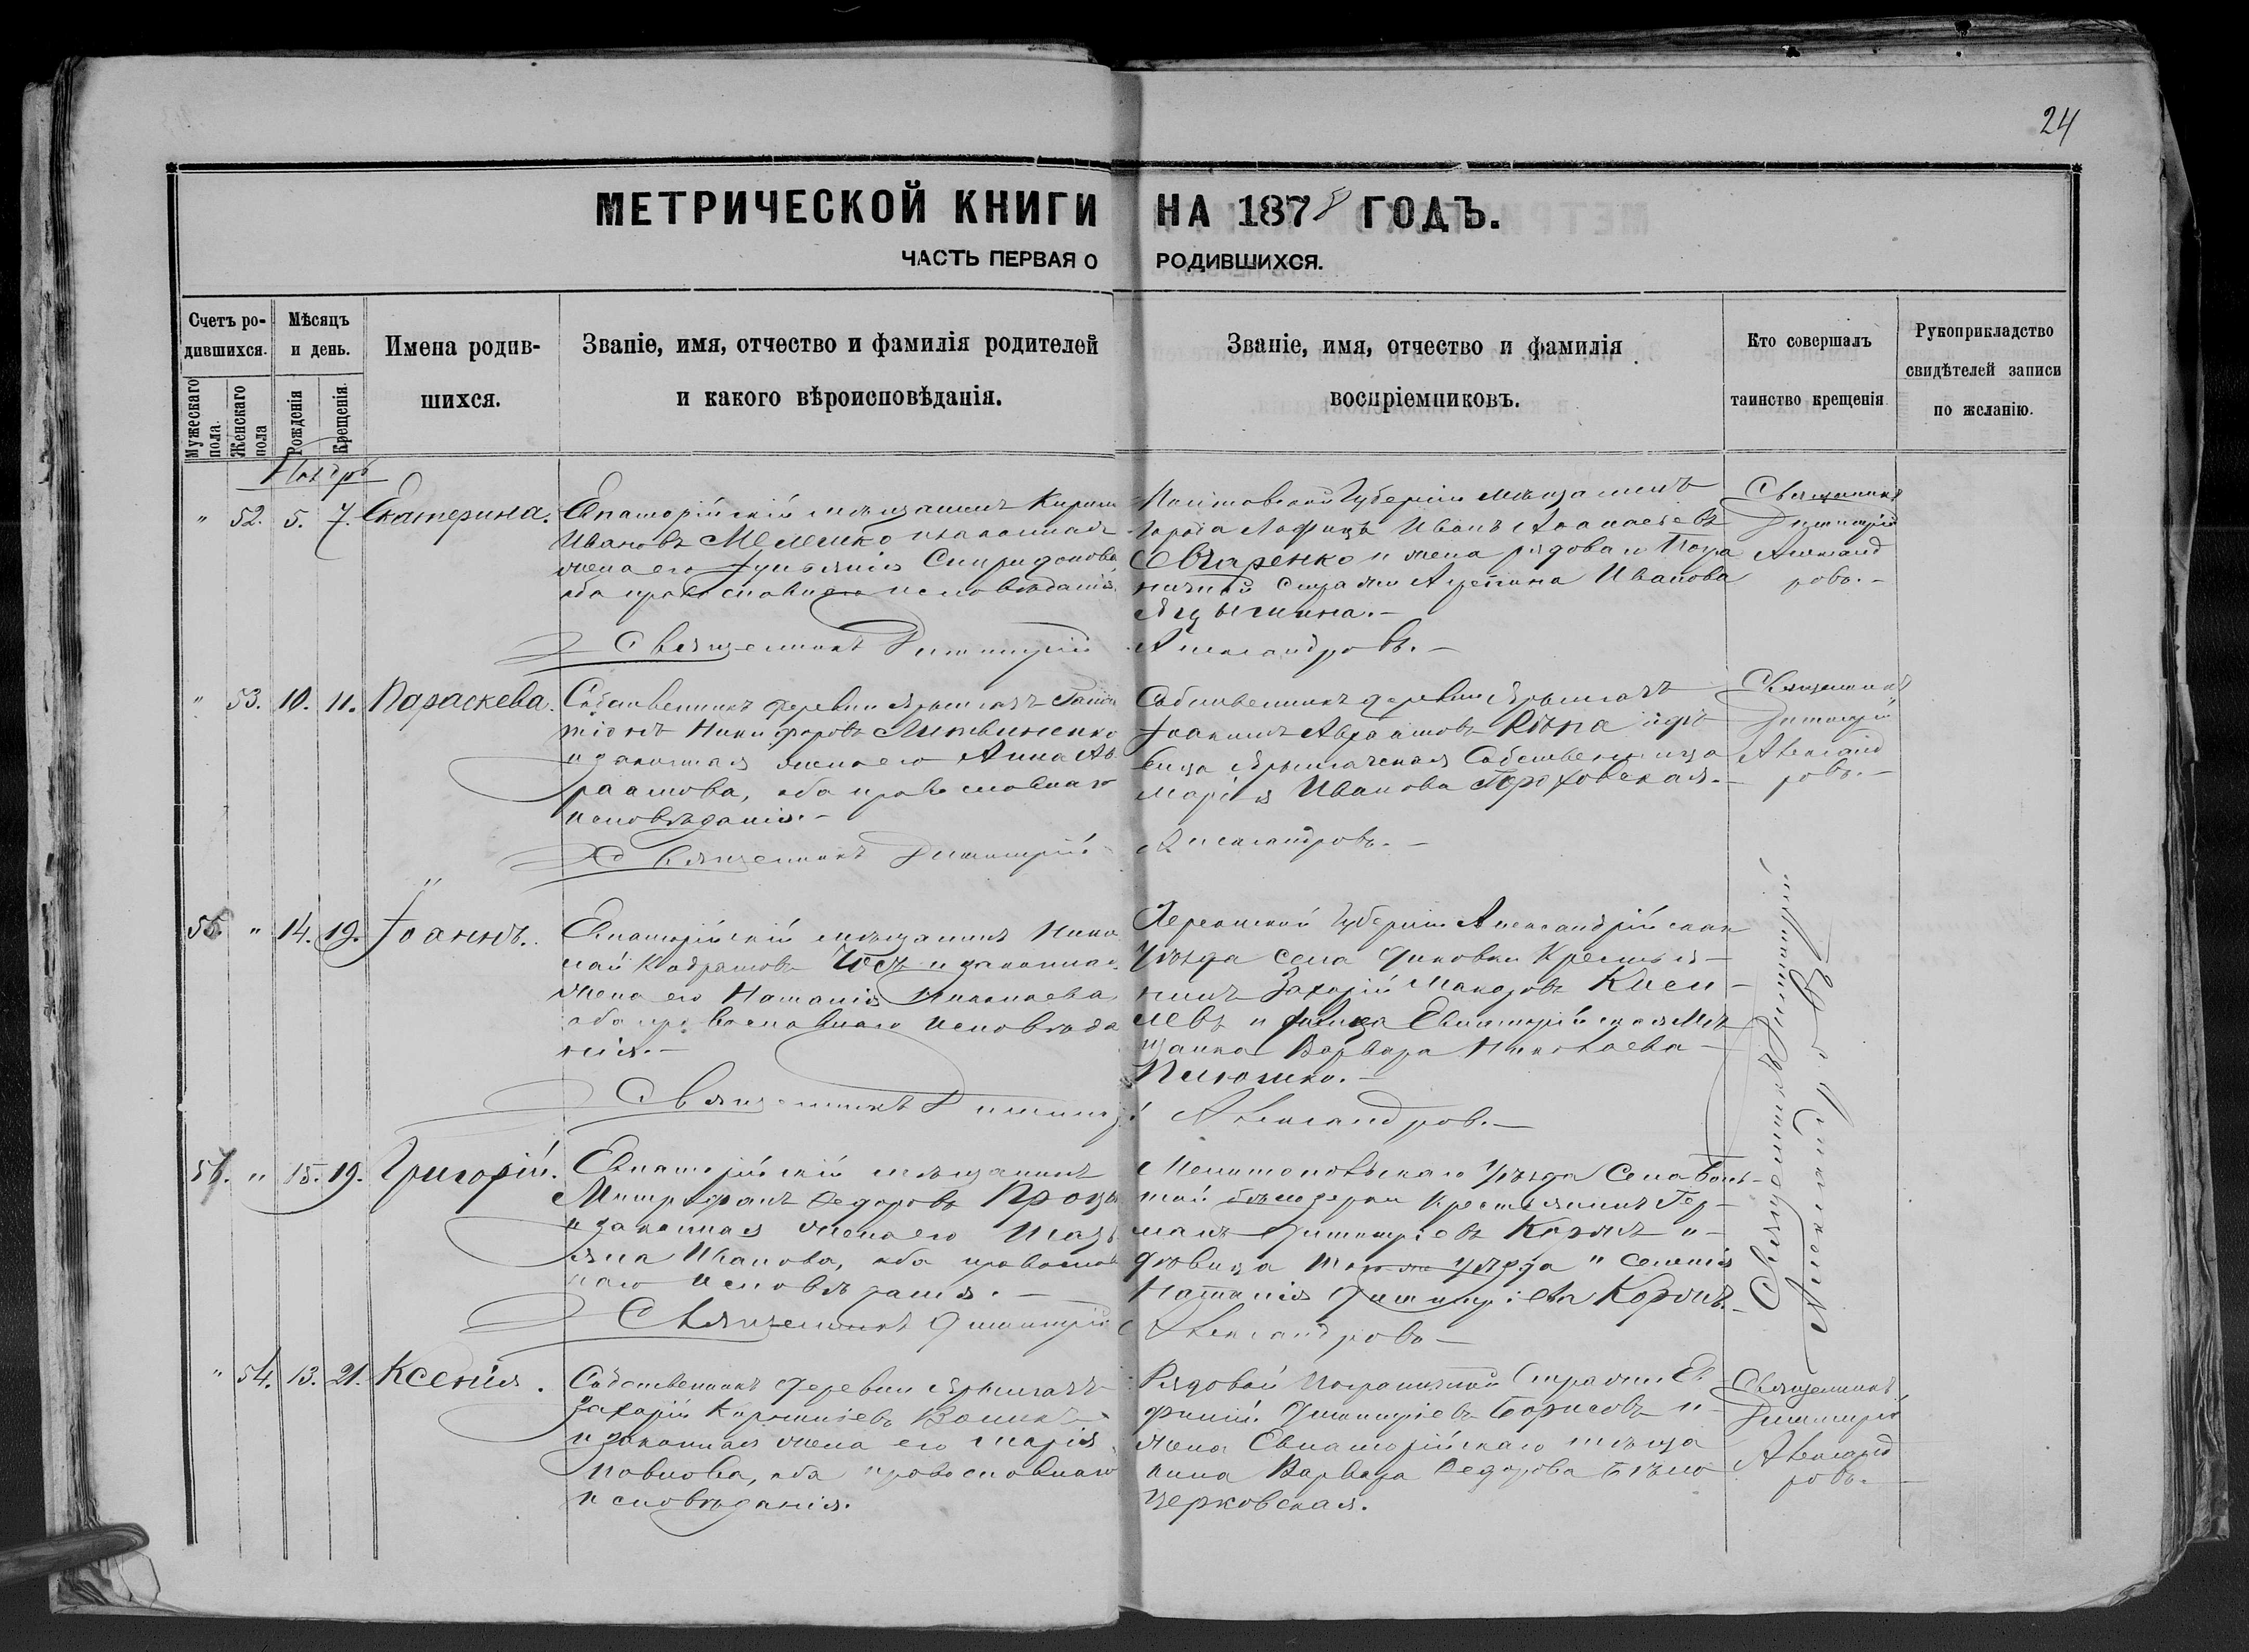 24
МЕТРИЧЕСКОЙ КНИГИ НА 1878 ГОДЪ.
ЧАСТЬ ПЕРВАЯ О РОДИВШИХСЯ.
Счетъ ро-
дившихся.
Мужескаго пола.
Женскаго пола
Мѣсяцъ
и день.
Рожденія
Крещенія.
Имена родив-
шихся.
Званіе, имя, отчество и фамилія родителей
и какого вѣроисповѣданія.
Званіе, имя, отчество и фамилія
воспріемниковъ.
Кто совершалъ
таинство крещенія
Рукоприкладство
свидѣтелей записи
по желанію.
Ноябрь
" 52. 5. 7. Екатерина.
Евпаторійскій мѣщанинъ
Ивановъ и законная
жена его Спиридонова,
оба православнаго исповѣданія.
Полтавской Губерніи мѣщанинъ
города Иванъ
Овчаренко и жена рядоваго Погра
ничной Стражи Ивановa
Священникъ
Димитрій
Александ
ровъ.-
Священникъ Димитрій Александровъ.-
" 53. 10. 11. Параскева.
Собственникъ деревни
Никифоровъ Литвиненко
и законная жена его Анна Ав
раамова, оба православнаго
исповѣданія.-
Собственникъ деревни
Іоакимъ Авраамовъ Рѣпа и дѣ
вица Собственница
Марія Иванова
Священникъ
Димитрій
Александ
ровъ.-
Священникъ Димитрій Александровъ.-
" 14. 19. Іоаннъ.
Евпаторійскій мѣщанинъ Нико
лай и законная
жена его Наталія Николаева,
оба православнаго исповѣда
нія.-
Херсонской Губерніи Александрійскаго
Уѣзда села Крестья-
нинъ Захарій Кисе-
левъ и дѣвица Евпаторійская Мѣ
щанка Варвара Николаева
Священникъ Димитрій
Александровъ
Священникъ Димитрій Александровъ.-
" 15. 19. Григорій.
Евпаторійскій мѣщанинъ
Митрофанъ Федоровъ
и законная жена его
Иванова, оба православ
наго исповѣданія.-
Мелитопольскаго Уѣзда Села Боль-
шой Бѣлозерки Крестьянинъ Гер-
манъ Димитріевъ Коржъ и
дѣвица уѣзда и селенія
Наталія Димитріева Коржъ.-
Священникъ Димитрій Александровъ-
" 54. 13. 21. Ксенія.
Собственникъ деревни
Захарій
и законная жена его Марія
Павлова, оба православнаго
исповѣданія.
Рядовой Пограничной Стражи Е
фимій Димитріевъ Борисовъ и
жена Евпаторійскаго мѣща
нина Варвара Федорова Бѣло
церковская.
Священникъ
Димитрій
Александ
ровъ.-